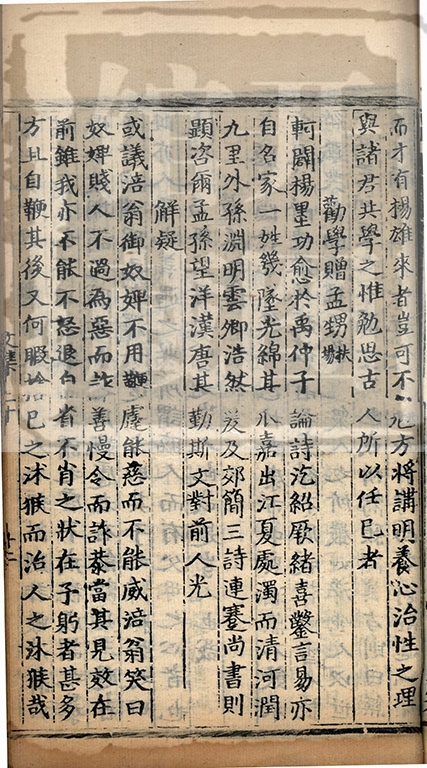 而才有楊雄來者豈可不勉方將講明養心治性之理
與諸君共學之惟勉思古人所以任已者
勸學贈孟甥扶揚
軻闢楊墨功愈於禹仲子論詩汔紹厥緒喜鑿言易亦
自名家一姓幾墜光綿其 嘉出江夏處濁而清河潤
九里外孫淵明雲卿浩然 及郊簡三詩連蹇尚書則
顯咨爾孟孫望洋漢唐其勤斯文對前人光
解疑
或議涪翁御奴婢不用鞭 能慈而不能威涪翁笑曰
奴婢賤人不過為惡而詐善慢令而詐恭當其見效在
前雖我亦不能不怒退自省不肖之狀在予躬者甚多
方且自鞭其後又何暇捨已之沐猴而治人之沐猴哉